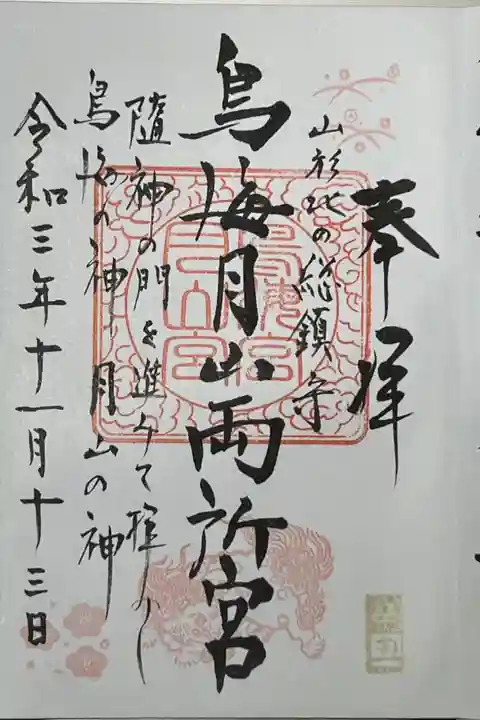 奉拝
山形北の総鎮守
鳥海月山両所宮
随神の門を進みて拝みし
鳥海の神 月山の神
令和三年十一月十三日